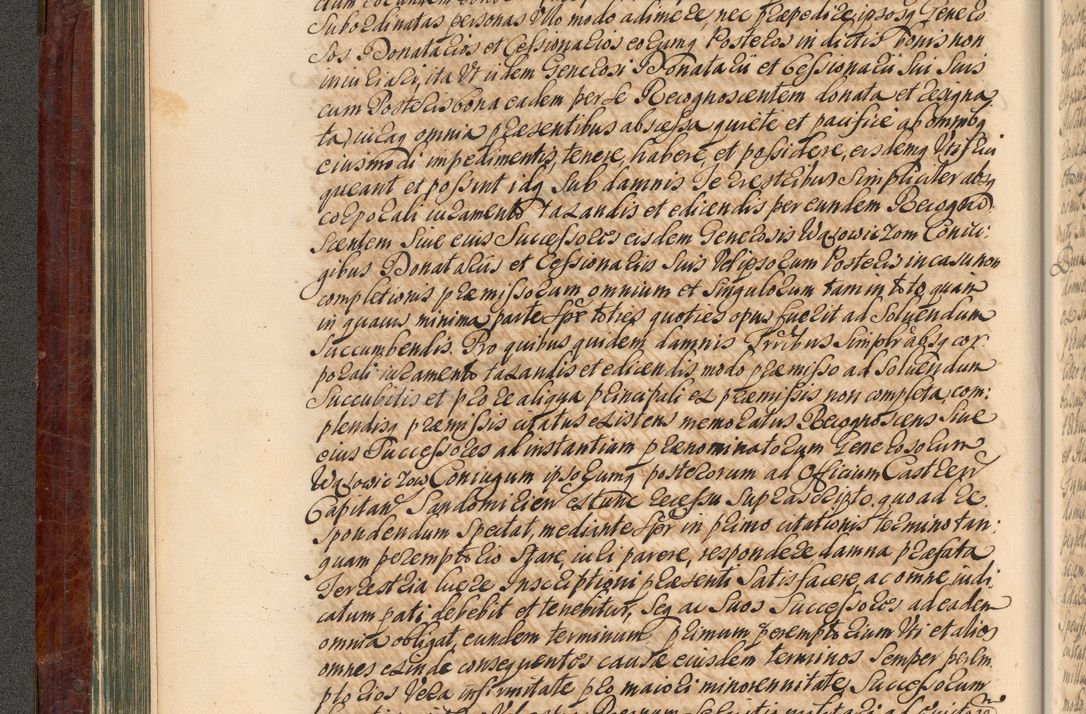 Subordinatas personas Ullo modo adimere, nec præpedire, ipsosq Genero
sos Donatarios et Cessionarios eorumq Posteros in dictis bonis non
iniuriari, ita Ut iidem Generosi Donatarii et Cessionarii Sui Suis
cum Posteris bona eadem per se Recognoscentem donata et resigna,
ta, iuraq omnia præsentibus abscessa quiete et pacifice ab omnibq
eiusmodi impedimentis, tenere, habere, et possidere, eisdemq Uti frui
queant et possint idq Sub damnis Terrestribus Simpliciter absq
corporali iuramento taxandis et edicendis per eundem Recogno
Scentem Siue eius Successores eisdem Generosis Wąsowiczom Coniu:
gibus Donatariis et Cessionariis Suis Vel ipsorum Posteris in casu non
completionis præmissorum omnium et singulorum tam in toto quam
in quauis minima parte Spr toties quoties opus fuerit ad Soluendum
Succumbendis. Pro quibus quidem damnis Trribus Simplr absq cor
porali iuramento taxandis et edicendis modo præmisso ad Soluendum
Succubitis et pro re aliqua principali ex præmissis non completa, com:
plendisq præmissis citatus existens memoratus Recognoscens Siue
eius Successores ad instantiam prænominatorum Generosorum
Wąsowiczow Coniugum ipsorumq posterorum ad Officium Castren
Capitan Sandomirien estunc Recessu Suprascripto, quo ad re
spondendum Spectat, mediante Spr in primo citationis termino tan:
quam peremptorio Stare, iuri parere, respondere damna præfata
Terrestria luere Inscriptioni præsenti Satisfacere, ac omne iudi
catum pati debebit et tenebitur, Seq ac Suos Successores ad eadem
omnia obligat, eundem terminum primum peremptorium Uti et alios
omnes exinde consequentes causæ eiusdem terminos Semper perem
ptorios Vera infirmitate pro maiori minoren nitate, Successorum